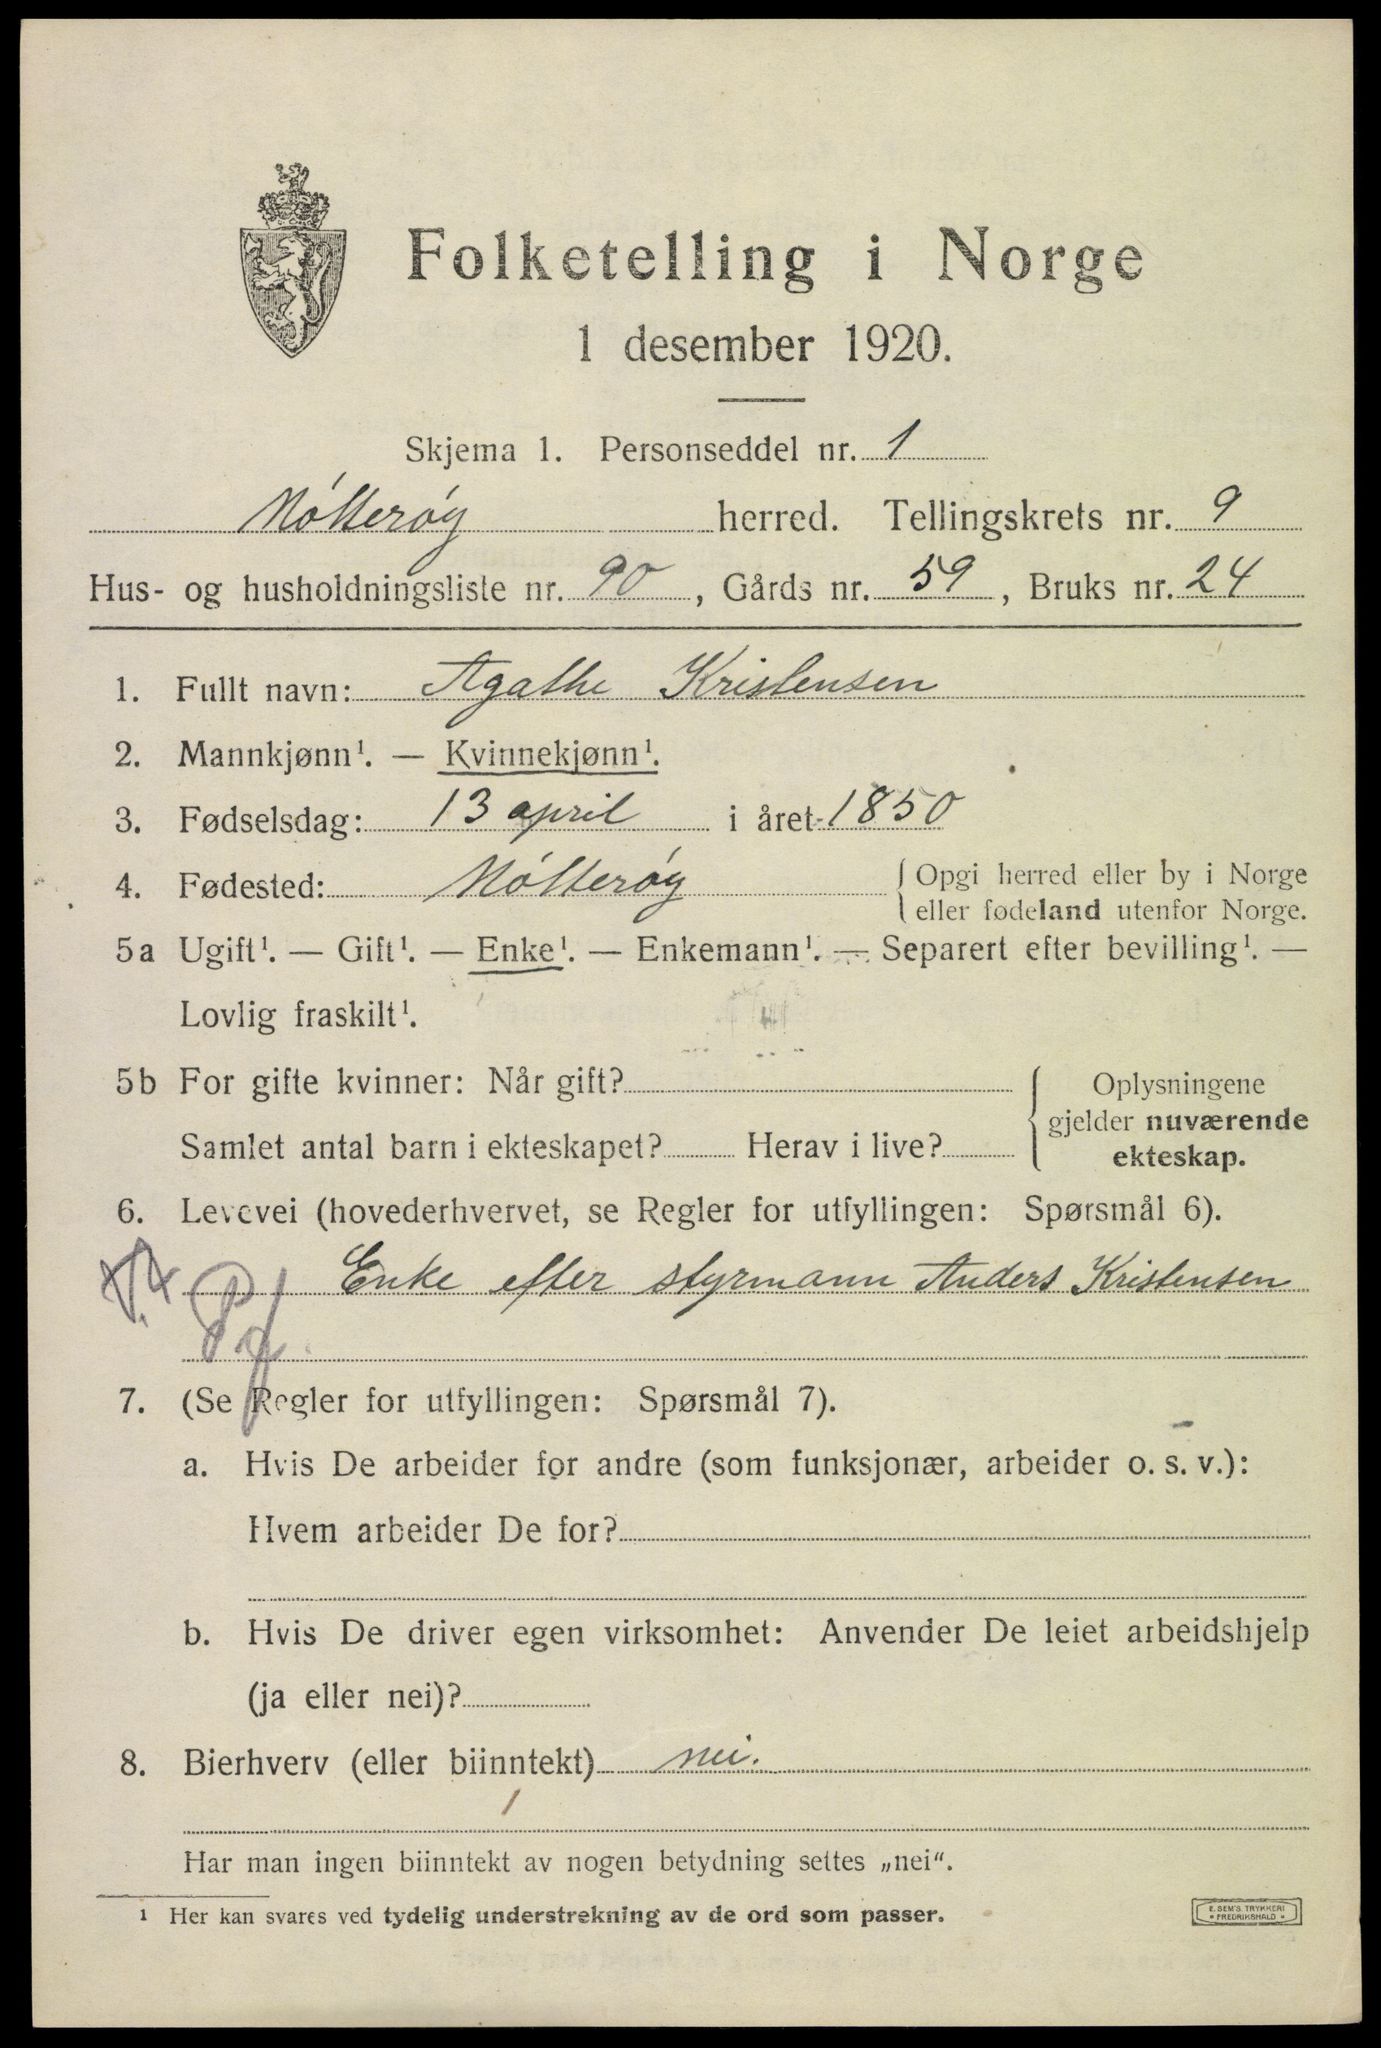 Folketelling i Norge
1 desember 1920.
Skjema 1. Personseddel nr. 1
Nótterøy herred. Tellingskrets nr. 9
Hus- og husholdningsliste nr. 90, Gårds nr. 59, Bruks nr. 24
1. Fullt navn: Agathe Kristensen
2. Mannkjønn¹. — Kvinnekjønn¹.
3. Fødselsdag: 13 april i året 1850
4. Fødested: Nótterøy { Opgi herred eller by i Norge
eller fødeland utenfor Norge.
5a Ugift¹. — Gift¹. — Enke¹. — Enkemann¹. — Separert efter bevilling¹. —
Lovlig fraskilt¹.
5b For gifte kvinner: Når gift?
Samlet antal barn i ekteskapet? Herav i live?
{ Oplysningene
gjelder nuværende
ekteskap.
6. Levevei (hovederhvervet, se Regler for utfyllingen: Spørsmål 6).
Enke efter styrmann Anders Kristensen
7. (Se Regler for utfyllingen: Spørsmål 7).
a. Hvis De arbeider for andre (som funksjonær, arbeider o. s. v.):
Hvem arbeider De for?
b. Hvis De driver egen virksomhet: Anvender De leiet arbeidshjelp
(ja eller nei)?
8. Bierhverv (eller biinntekt) nei.
Har man ingen biinntekt av nogen betydning settes „nei“.
¹ Her kan svares ved tydelig understrekning av de ord som passer.
E. SEM'S TRYKKERI
• FREDRIKSHALD •